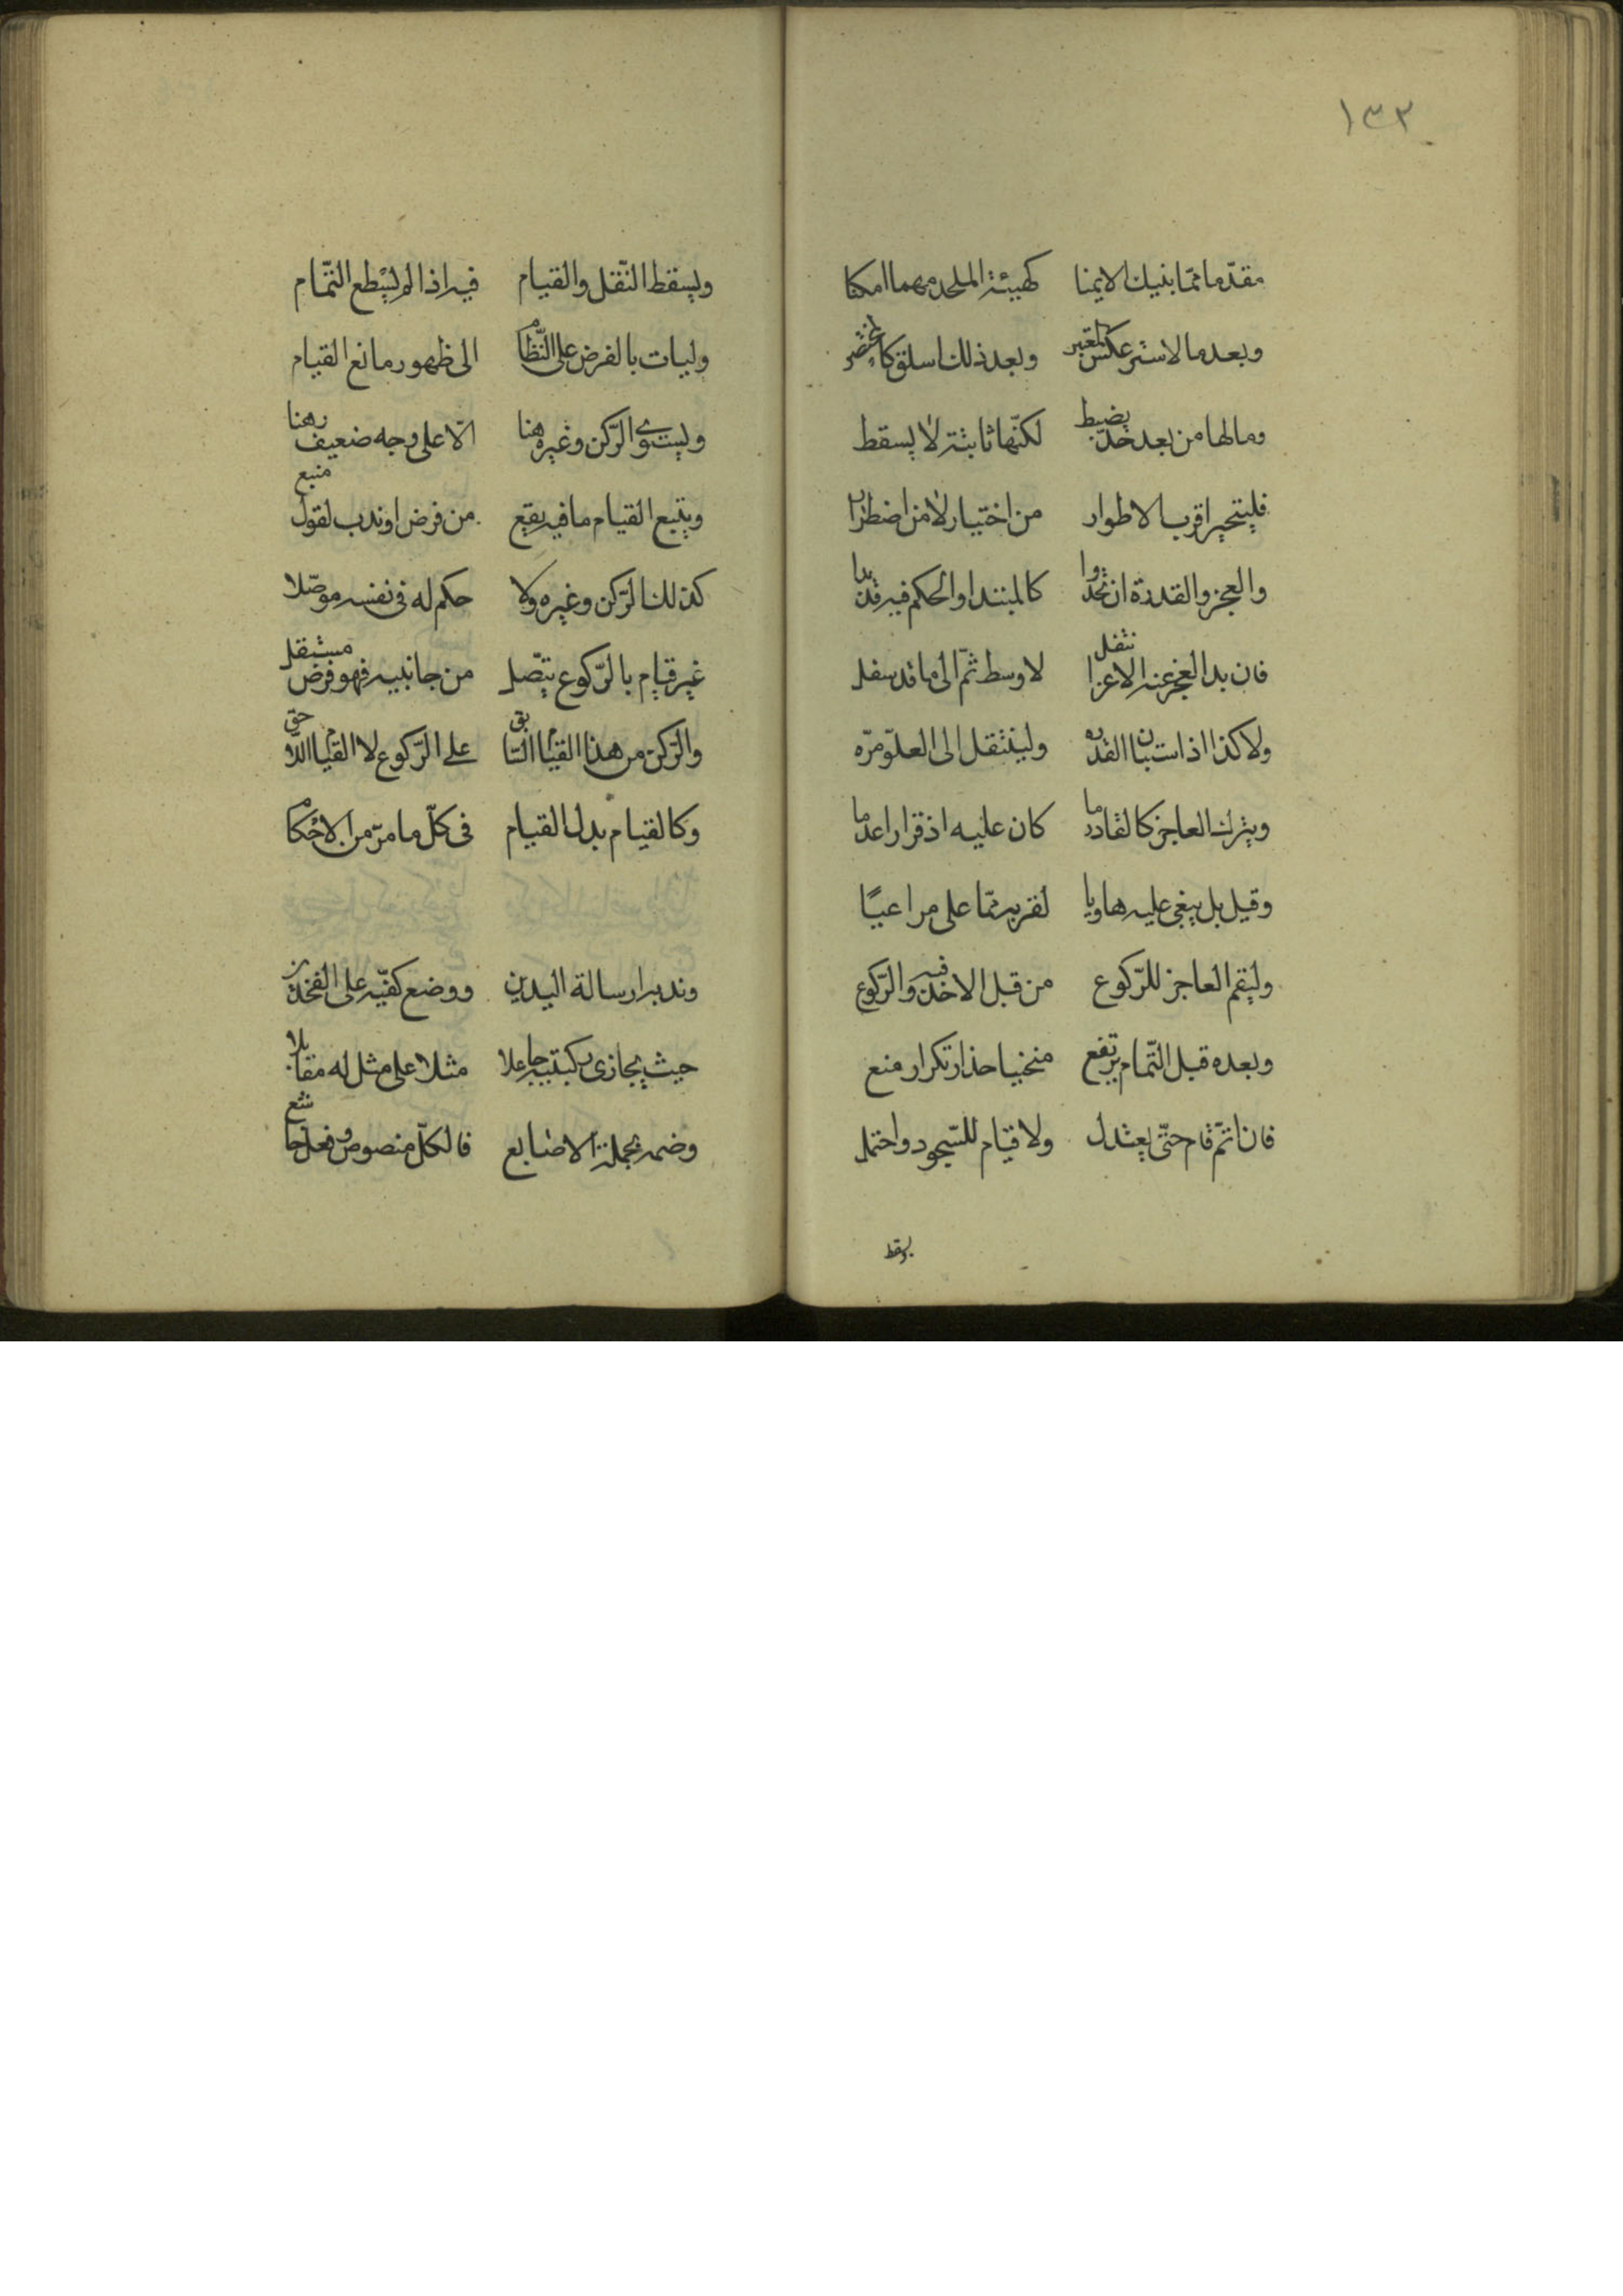 ١٣٢
مقدّما ممّا بنيك الايمنا كهيئة الملحد مهما امكنا
وبعدها لايسر عكس المعتبر وبعد ذلك استلق كالمحتضر
وما لها من بعد حدّ يضبط لكنّها ثابتة لا يسقط
فليتحير اقرب الاطوار من اختيار لا من اضطرار
والعجز والقدرة ان تجدّدا كالمبتدا والحكم فيه قد بدا
فان بدا العجز عند الاعزا نتقل لاوسط ثمّ الى ما قد سفل
ولا كذا اذا استبان القدره ولينتقل الى العلوّ مرّه
ويترك العاجز كالقادر ما كان عليه اذ قرارا عدما
وقيل بل يبغى عليه هاويا لقربه ممّا على مراعيًا
وليقم العاجز للرّكوع من قبل الاخذ فيه والرّكوع
وبعده قبل التّمام يرتفع منحنيا حذار تكرار منع
فان اتمّ قام حتّى يعتدل ولا قيام للسّجود واحتمل
ويسقط النّفل والقيام فيه اذا لم يسطع التّمام
وليات بالفرض على النّظام الى ظهور مانع القيام
ويستوى الرّكن وغيره هنا الّا على وجه ضعيف رهنا
ويتبع القيام ما فيه يقع من فرض او ندب لقول متبع
كذلك الرّكن وغيره ولا حكم له فى نفسه موصّلا
غير قيام بالرّكوع يتّصل من جانبيه فهو فرض مستقل
والرّكن من هذا القيام السّابق على الرّكوع لا القيام اللّاحق
وكالقيام بدل القيام فى كلّ ما مرّ من الاحكام
وندبه ارسالة اليدين ووضع كفّيه على الفخذين
حيث يحازى ركبتيه جاعلا مثلا على مثل له مقابلا
وضمه بجملة الاصابع فالكلّ منصوص وفعل خاشع